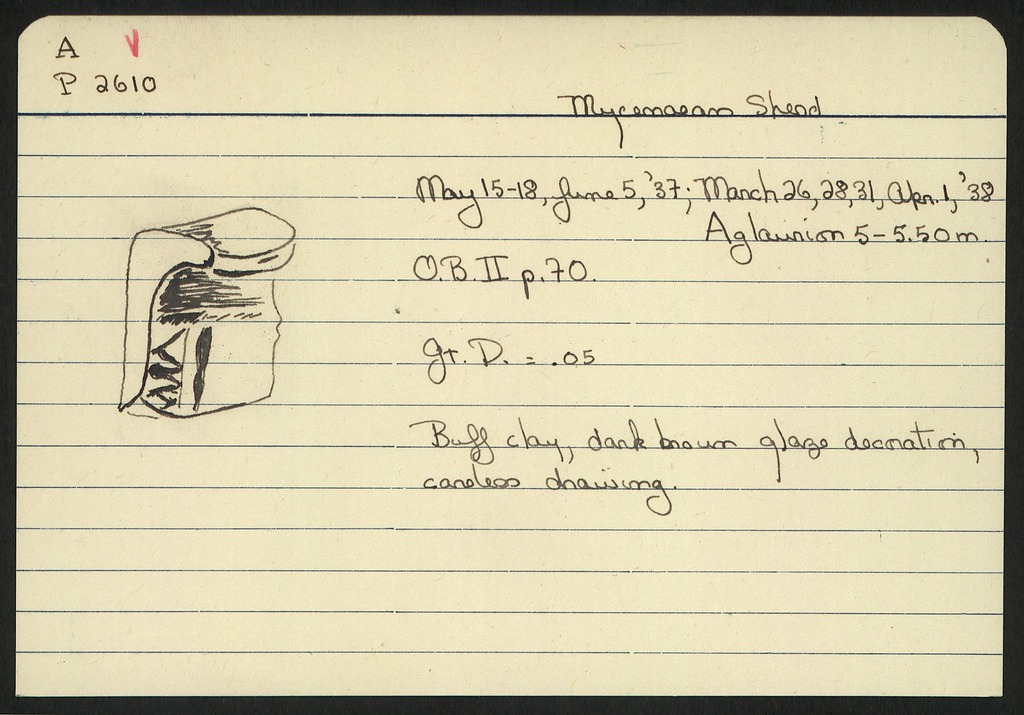 A
P 2610
Mycenaean Sherd
May 15-18, June 5, '37; March 26, 28, 31, Apr. 1, '38
Aglaurion 5-5.50 m.
O.B. II p. 70.
Gr. D. = .05
Buff clay, dark brown glaze decoration,
careless drawing.